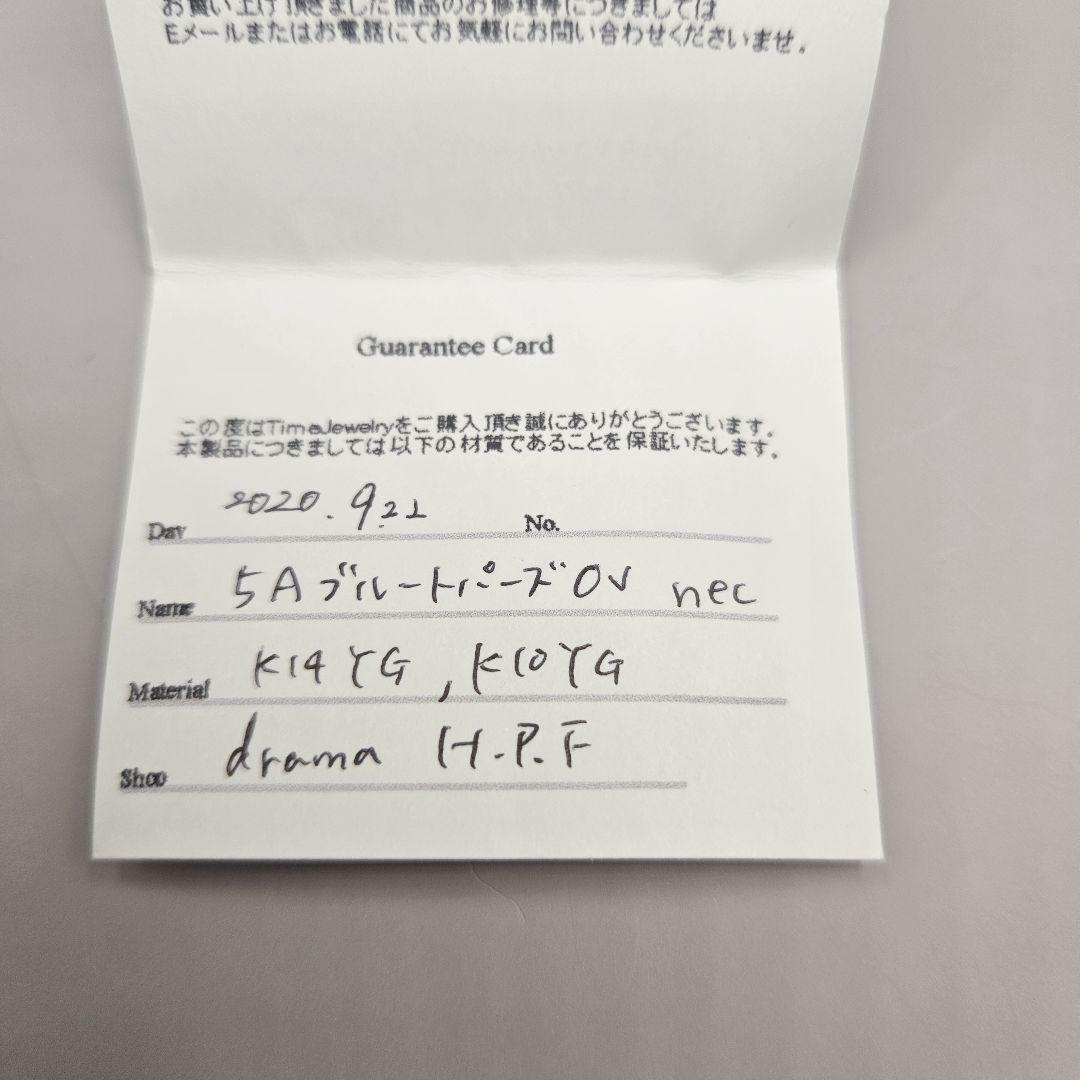 お買い上げ頂きました商品のお修理等につきましては
Eメールまたはお電話にてお気軽にお問い合わせくださいませ。
Guarantee Card
この度はTimeJewelryをご購入頂き誠にありがとうございます。
本製品につきましては以下の材質であることを保証いたします。
Day 2020.9.21 No.
Name 5Aブルートパーズ OV nec
Material K14YG, K10YG
Shop drama H.P.F